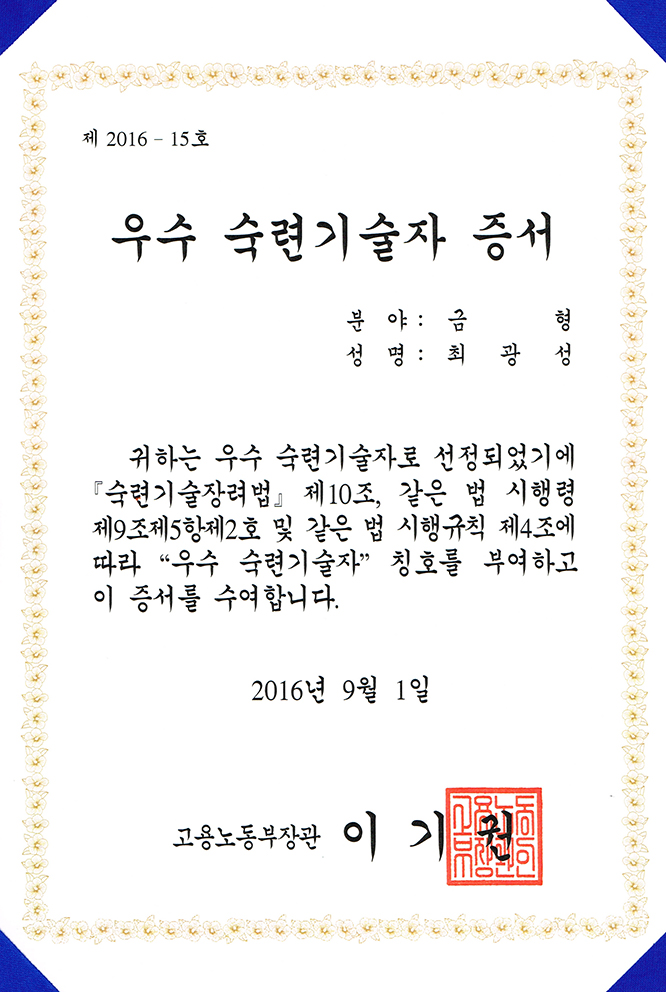 제 2016 - 15호
우수 숙련기술자 증서
분 야 : 금 형
성 명 : 최 광 성
귀하는 우수 숙련기술자로 선정되었기에
『숙련기술장려법』 제10조, 같은 법 시행령
제9조제5항제2호 및 같은 법 시행규칙 제4조에
따라 “우수 숙련기술자” 칭호를 부여하고
이 증서를 수여합니다.
2016년 9월 1일
고용노동부장관 이 기 권